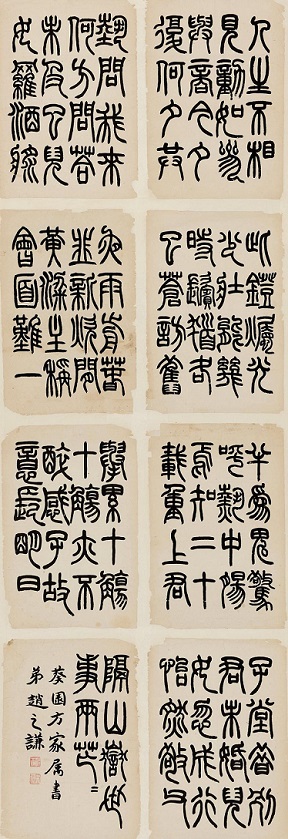 人生不相
見動如參
與商今夕
復何夕共
此鐙燭光
少壯能幾
時鬢髮各
已蒼訪舊
半為鬼驚
呼熱中腸
焉知二十
載重上君
子堂昔別
君未婚兒
女忽成行
怡然敬父
執問我來
何方問答
未及已兒
女羅酒漿
夜雨剪春
韭新炊間
黃粱主稱
會面難一
舉累十觴
十觴亦不
醉感子故
意長明日
隔山嶽世
事兩芒〻
葵園方家屬書
弟趙之謙